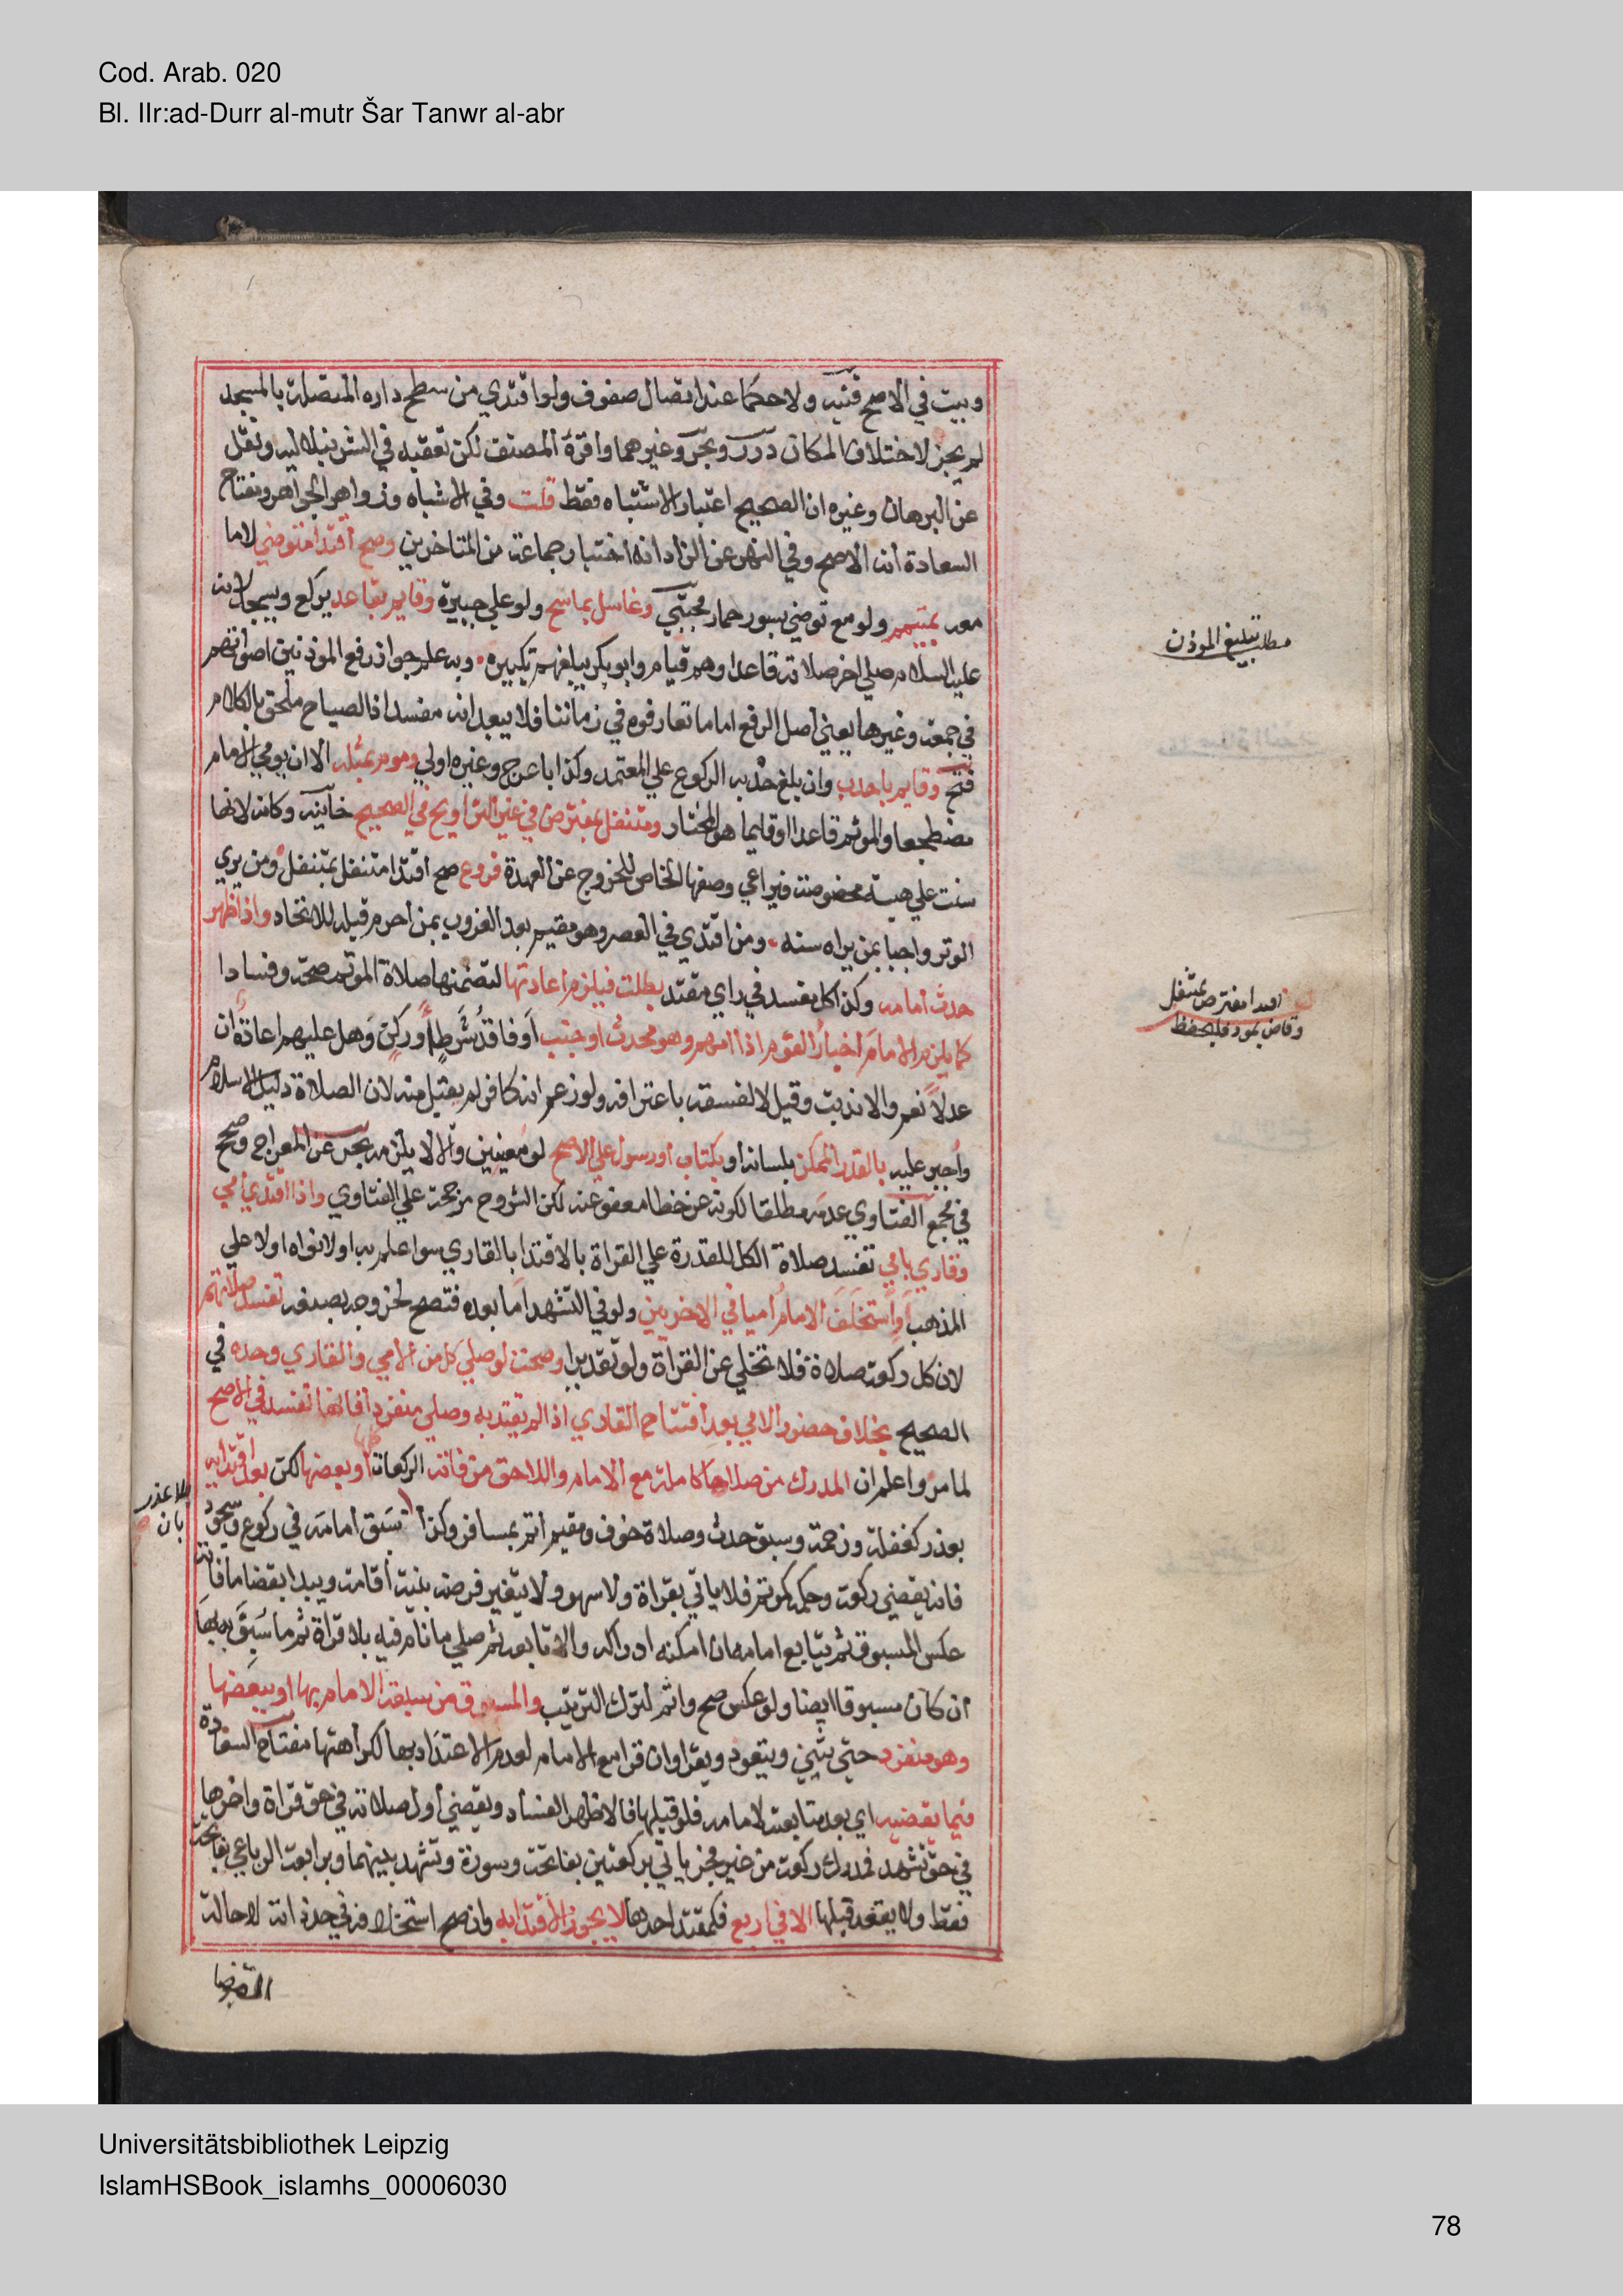 Cod. Arab. 020
Bl. IIr:ad-Durr al-mutr Šar Tanwr al-abr
وبيت في الاصح قنيه ولا حكما عند اتصال صفوف ولو اقتدي من سطح داره المتصلة بالمسجد
لم يجز لاختلاف المكان درر وبحر وغيرهما واقره المصنف لكن تعقبه في الشرنبلاليه ونقل
عن البرهان وغيره ان الصحيح اعتبار الاشتباه فقط قلت وفي الاشباه وزواهر الجواهر ومفتاح
السعادة انه الاصح وفي النهر عن الزاد انه اختيار جماعة من المتاخرين وصح اقتدا متوضي لا ما
معه بمتيمم ولو مع توضي بسور حمار مجتبي وغاسل بماسح ولو علي جبيرة وقايم بقاعد يركع ويسجد لانه
عليه السلام صلي اخر صلاته قاعدا وهم قيام وابو بكر يبلغهم تكبيره وبه علم جواز رفع الموذنين اصواتهم
في جمعة وغيرها يعني اصل الرفع اما ما تعارفوه في زماننا فلا يبعد انه مفسد اذ الصياح ملحق بالكلام
فتح وقايم باحدب وان بلغ حدبه الركوع علي المعتمد وكذا باعرج وغيره اولي ومومر بمثله الا ان يومي الامام
مضطجعا والموتم قاعدا او قايما هو المختار ومتنفل بمفترض في غير التراويح في الصحيح خانيه وكانه لانها
سنت علي هية مخصوصة فيراعي وصفها الخاص للخروج عن العهدة فروع صح اقتدا متنفل بمتنفل ومن يري
الوتر واجبا بمن يراه سنه ومن اقتدي في العصر وهو مقيم بعد الغروب بمن احرم قبله للاتحاد واذا ظهر
حدث امامه وكذا كل مفسد في راي مقتد بطلت فيلزم اعادتها لتضمنها صلاة الموتم صحة وفسادا
كما يلزم الامام اخبار القوم اذا امهم وهو محدث او جنب او فاقد شرط او ركن وهل عليهم اعادة ان
عدلا نعم والا ندبت وقيل لا لفسقه باعترافه ولو زعم انه كافر لم يقبل منه لان الصلاة دليل الاسلام
واجبر عليه بالقدر الممكن بلسانه او بكتاب او رسول علي الاصح لو معينين والا لا يلزمه بحر عن المعراج وصحح
في مجمع الفتاوي عدمه مطلقا لكونه عن خطا معفو عنه لكن الشروح مرجحة علي الفتاوي واذا اقتدي امي
وقاري بامي تفسد صلاة الكل للقدرة علي القراة بالاقتدا بالقاري سوا علم به او لا نواه او لا علي
المذهب او استخلف الامام اميا في الاخريين ولو في التشهد اما بعده فتصح لخروجه بصنعه تفسد صلاتهم
لان كل ركعة صلاة فلا تخلي عن القراة ولو تقديرا وصحت لو صلي كل من الامي والقاري وحده في
الصحيح بخلاف حضور الامي بعد افتتاح القاري اذا لم يقتد به وصلي منفردا فانها تفسد في الاصح
لما مر واعلم ان المدرك من صلاها كاملة مع الامام واللاحق من فاتته الركعات كلها او بعضها لكن بعد اقتدايه
بعذر كغفلة وزحمة وسبق حدث وصلاة خوف ومقيم اتم بمسافر وكذا سبق امامه في ركوع وسجود
فانه يقضي ركعة وحكمه كموتم فلا ياتي بقراة ولا سهو ولا يتغير فرضه بنية اقامة ويبدا بقضا ما فاته
عكس المسبوق ثم يتابع امامه ان امكنه ادراكه والا تابعه ثم صلي ما نام فيه بلا قراة ثم ما سبق به بها
ان كان مسبوقا ايضا ولو عكس صح واثم لترك الترتيب والمسبوق من سبقه الامام بها او ببعضها
وهو منفرد حتي يثني ويتعوذ ويقرا وان قرا مع الامام لعدم الاعتداد بها لكراهتها مفتاح السعادة
فيما يقضيه اي بعد متابعته لامامه فلو قبلها فالاظهر الفساد ويقضي اول صلاته في حق قراة واخرها
في حق تشهد فمدرك ركعة من غير فجر ياتي بركعتين بفاتحة وسورة وتشهد بينهما وبرابعة الرباعي بفاتحة
فقط ولا يقعد قبلها الا في اربع فكمقتد احدها لا يجوز الاقتدا به وان صح استخلافه في حد ذاته لا حالة
القضا
مطلب تبليغ الموذن
اقتدا مفترض بمتنفل
بلا عذر
بان
Universitätsbibliothek Leipzig
IslamHSBook_islamhs_00006030
78